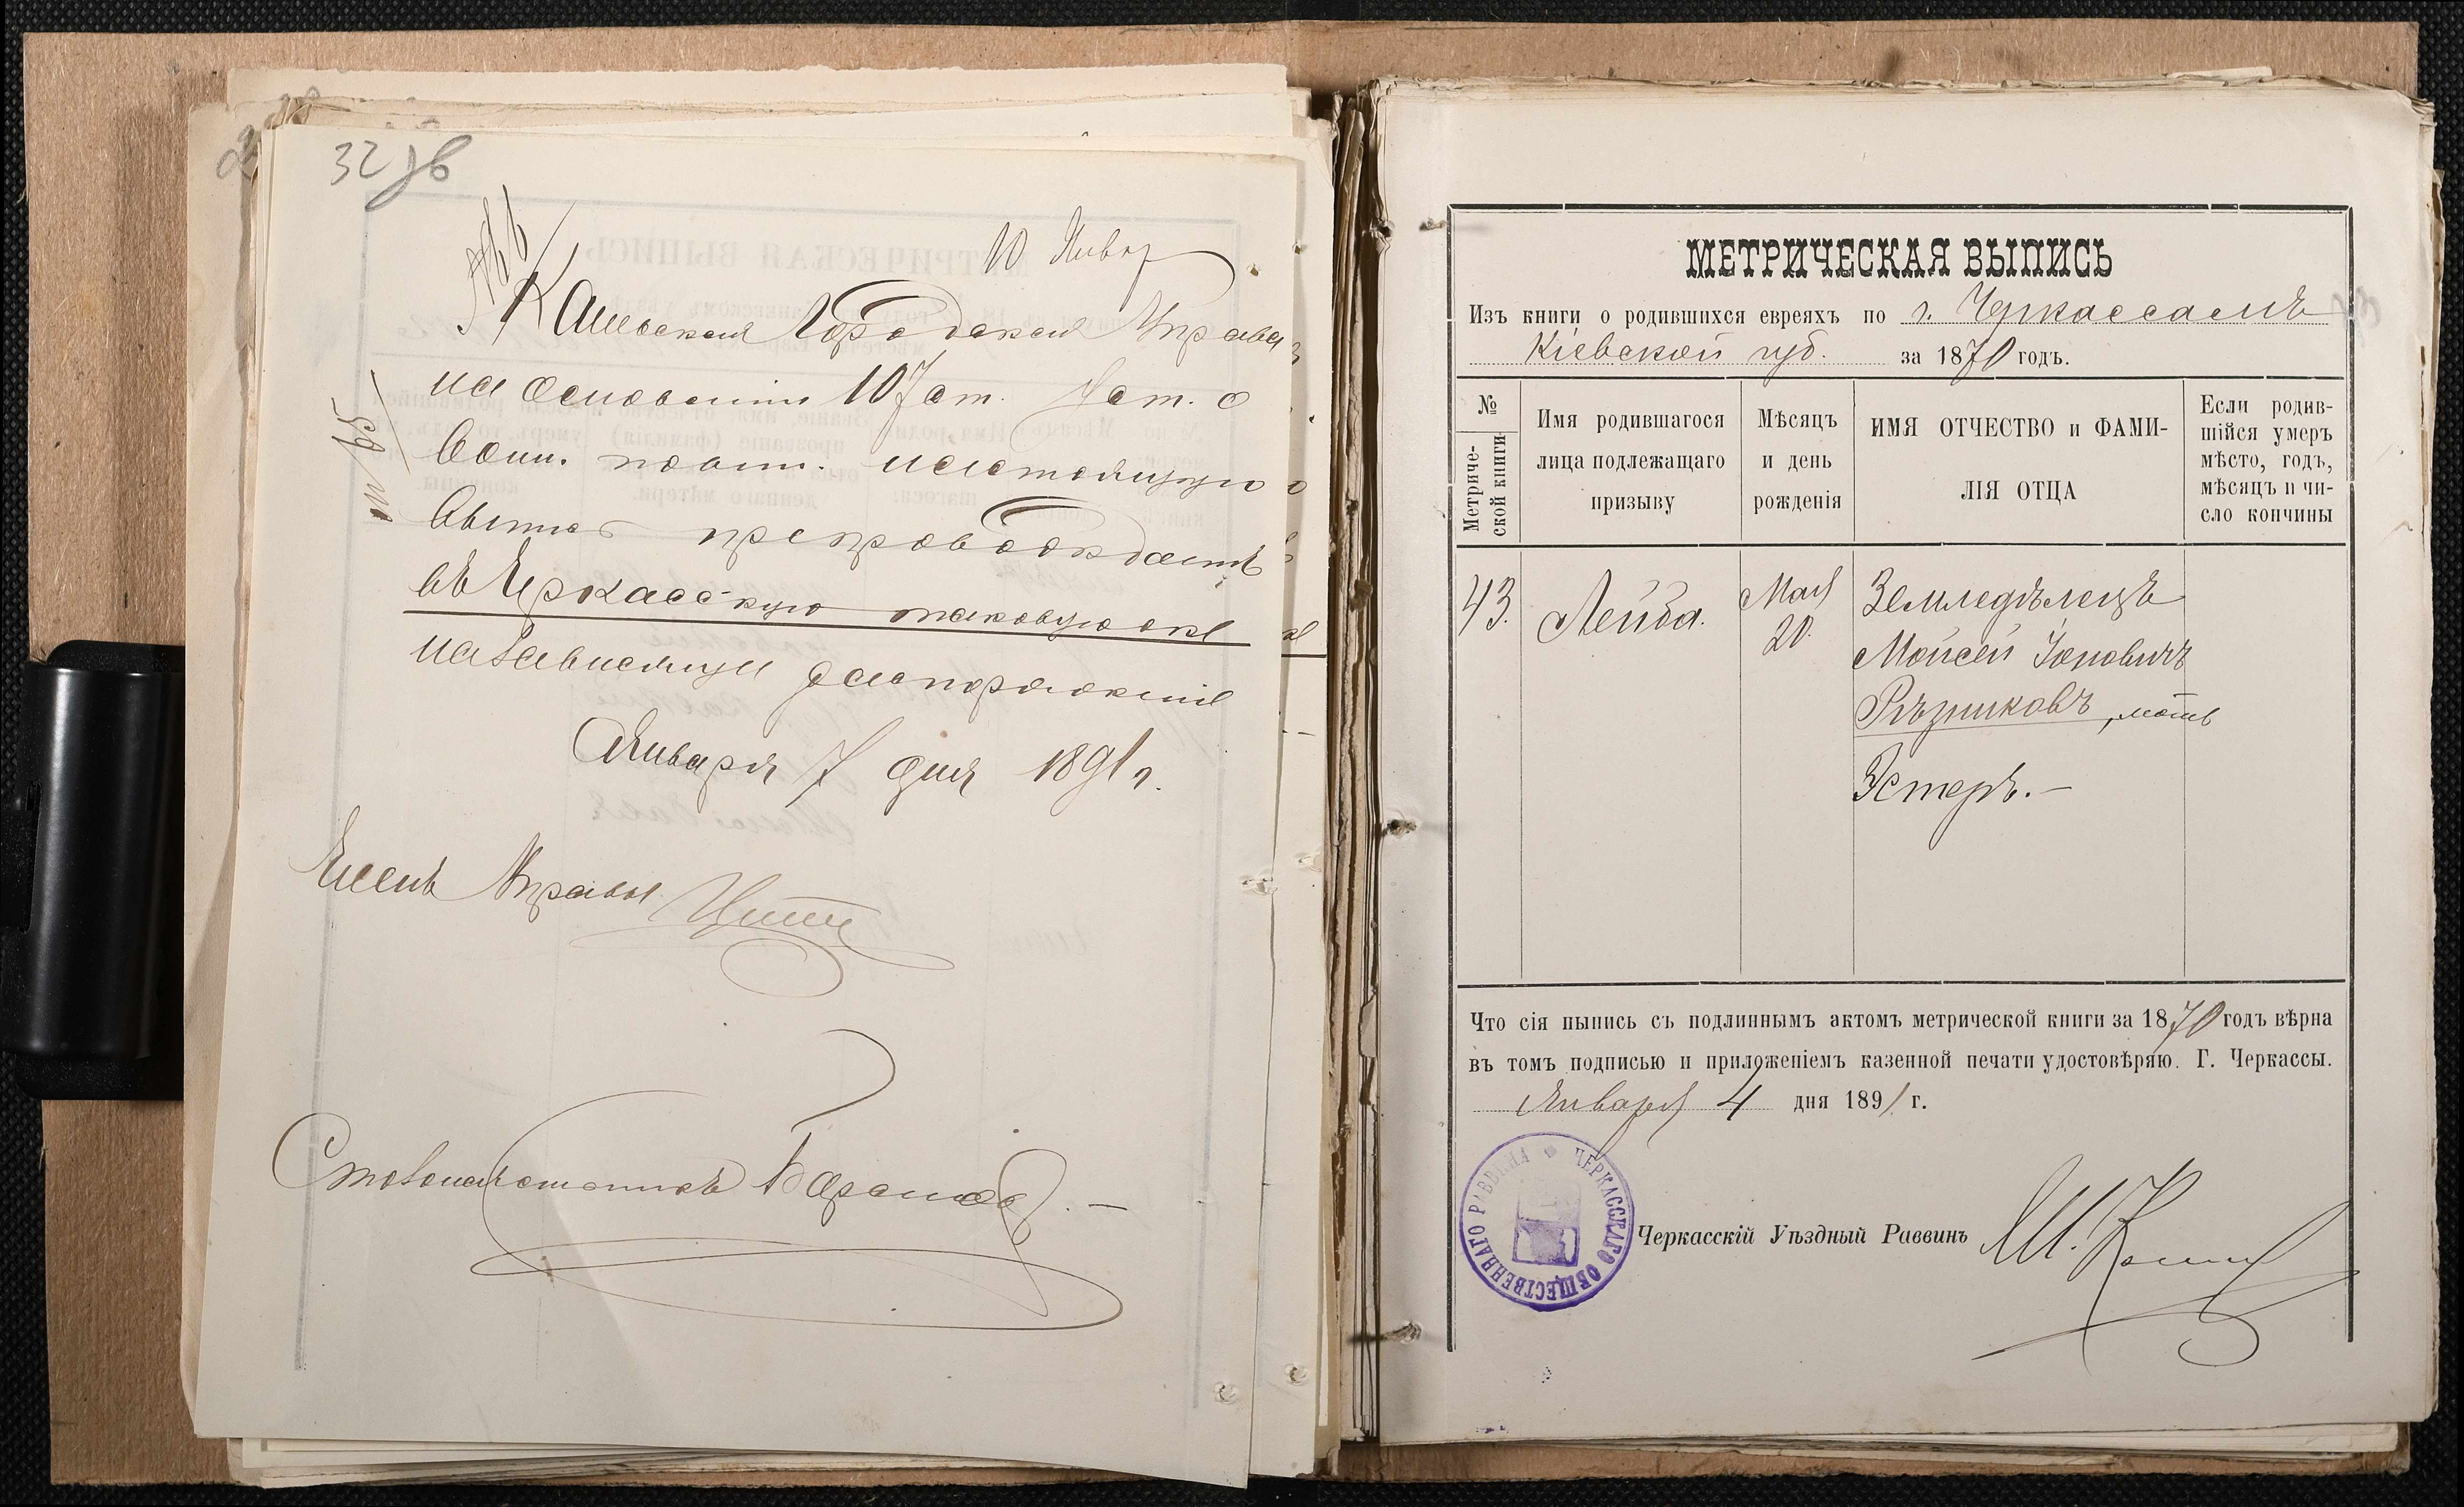 32 зв
10 Январ
Каневская Городская Управа
на основаніи 107 ст. Уст. о
Воин. повин. настоящую
выпись препровождаетъ
въ Черкасскую таковую же
на зависящія распоряженія
Января 7 дня 1891 г.
№ 65
Членъ Управы
Столоначальникъ
МЕТРИЧЕСКАЯ ВЫПИСЬ
Изъ книги о родившихся евреяхъ по г. Черкассамъ
Кіевской губ. за 1870 годъ.
№ Метриче-ской книги
Имя родившагося лица подлежащаго призыву
Мѣсяцъ и день рожденія
ИМЯ ОТЧЕСТВО и ФАМИ-ЛІЯ ОТЦА
Если родив-шійся умеръ мѣсто, годъ, мѣсяцъ и чи-сло кончины
43. Лейба. Мая 20. Земледѣлецъ
Мойсей Іоновичъ
Рѣзниковъ, мать
Эстеръ.—
Что сія выпись съ подлиннымъ актомъ метрической книги за 1870 годъ вѣрна
въ томъ подписью и приложеніемъ казенной печати удостовѣряю. Г. Черкассы.
Января 4 дня 1891 г.
ЧЕРКАССКАГО ОБЩЕСТВЕННАГО РАВВИНА
Черкасскій Уѣздный Раввинъ